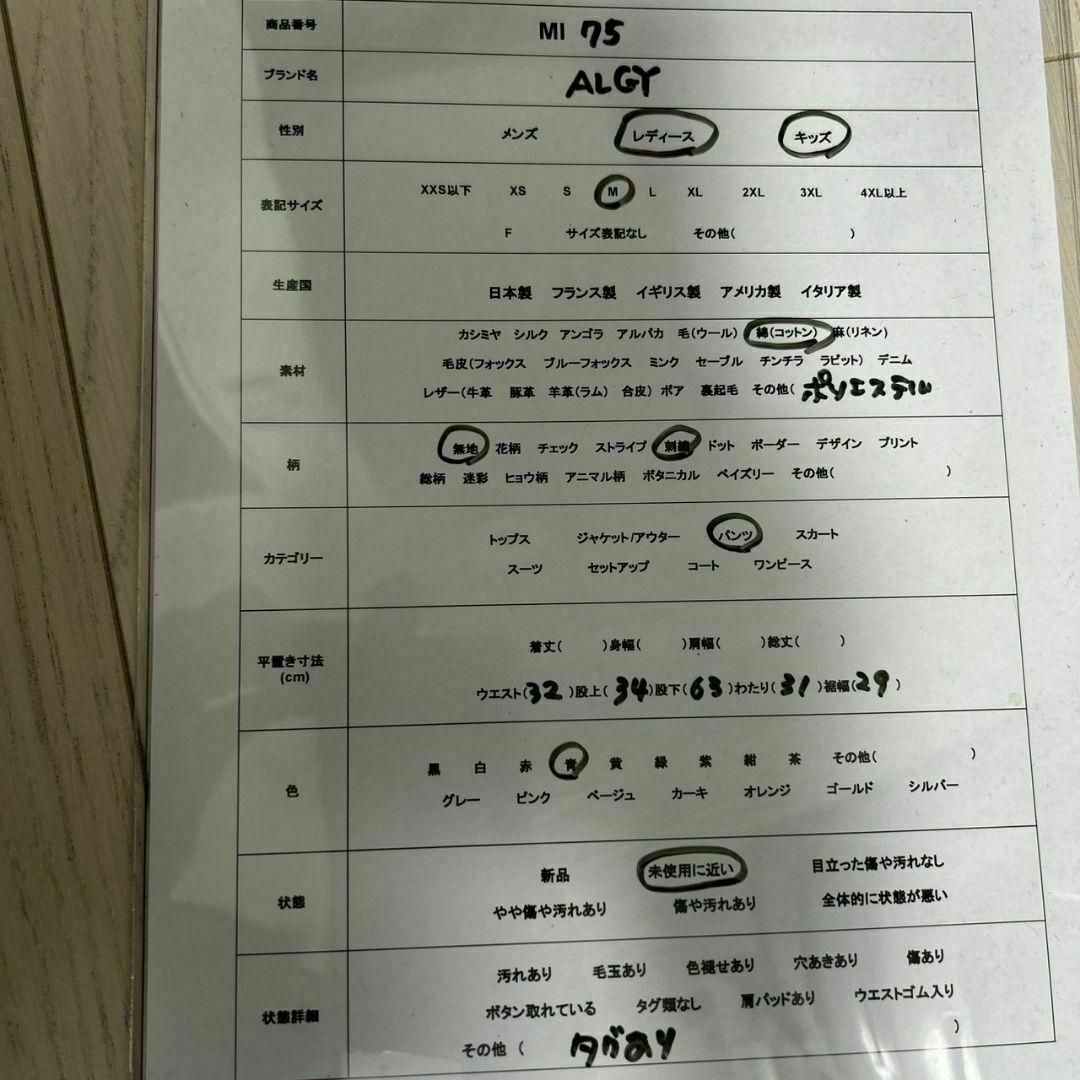 商品番号 MI 75
ブランド名 ALGY
性別 メンズ レディース キッズ
表記サイズ XXS以下 XS S M L XL 2XL 3XL 4XL以上
F サイズ表記なし その他( )
生産国 日本製 フランス製 イギリス製 アメリカ製 イタリア製
素材 カシミヤ シルク アンゴラ アルパカ 毛(ウール) 綿(コットン) 麻(リネン)
毛皮(フォックス ブルーフォックス ミンク セーブル チンチラ ラビット) デニム
レザー(牛革 豚革 羊革(ラム) 合皮) ボア 裏起毛 その他( ポリエステル
柄 無地 花柄 チェック ストライプ 刺繍 ドット ボーダー デザイン プリント
総柄 迷彩 ヒョウ柄 アニマル柄 ボタニカル ペイズリー その他( )
カテゴリー トップス ジャケット/アウター パンツ スカート
スーツ セットアップ コート ワンピース
平置き寸法 (cm) 着丈( )身幅( )肩幅( )総丈( )
ウエスト(32)股上(34)股下(63)わたり(31)裾幅(29)
色 黒 白 赤 青 黄 緑 紫 紺 茶 その他( )
グレー ピンク ベージュ カーキ オレンジ ゴールド シルバー
状態 新品 未使用に近い 目立った傷や汚れなし
やや傷や汚れあり 傷や汚れあり 全体的に状態が悪い
状態詳細 汚れあり 毛玉あり 色褪せあり 穴あきあり 傷あり
ボタン取れている タグ類なし 肩パッドあり ウエストゴム入り
その他 ( タグあり )